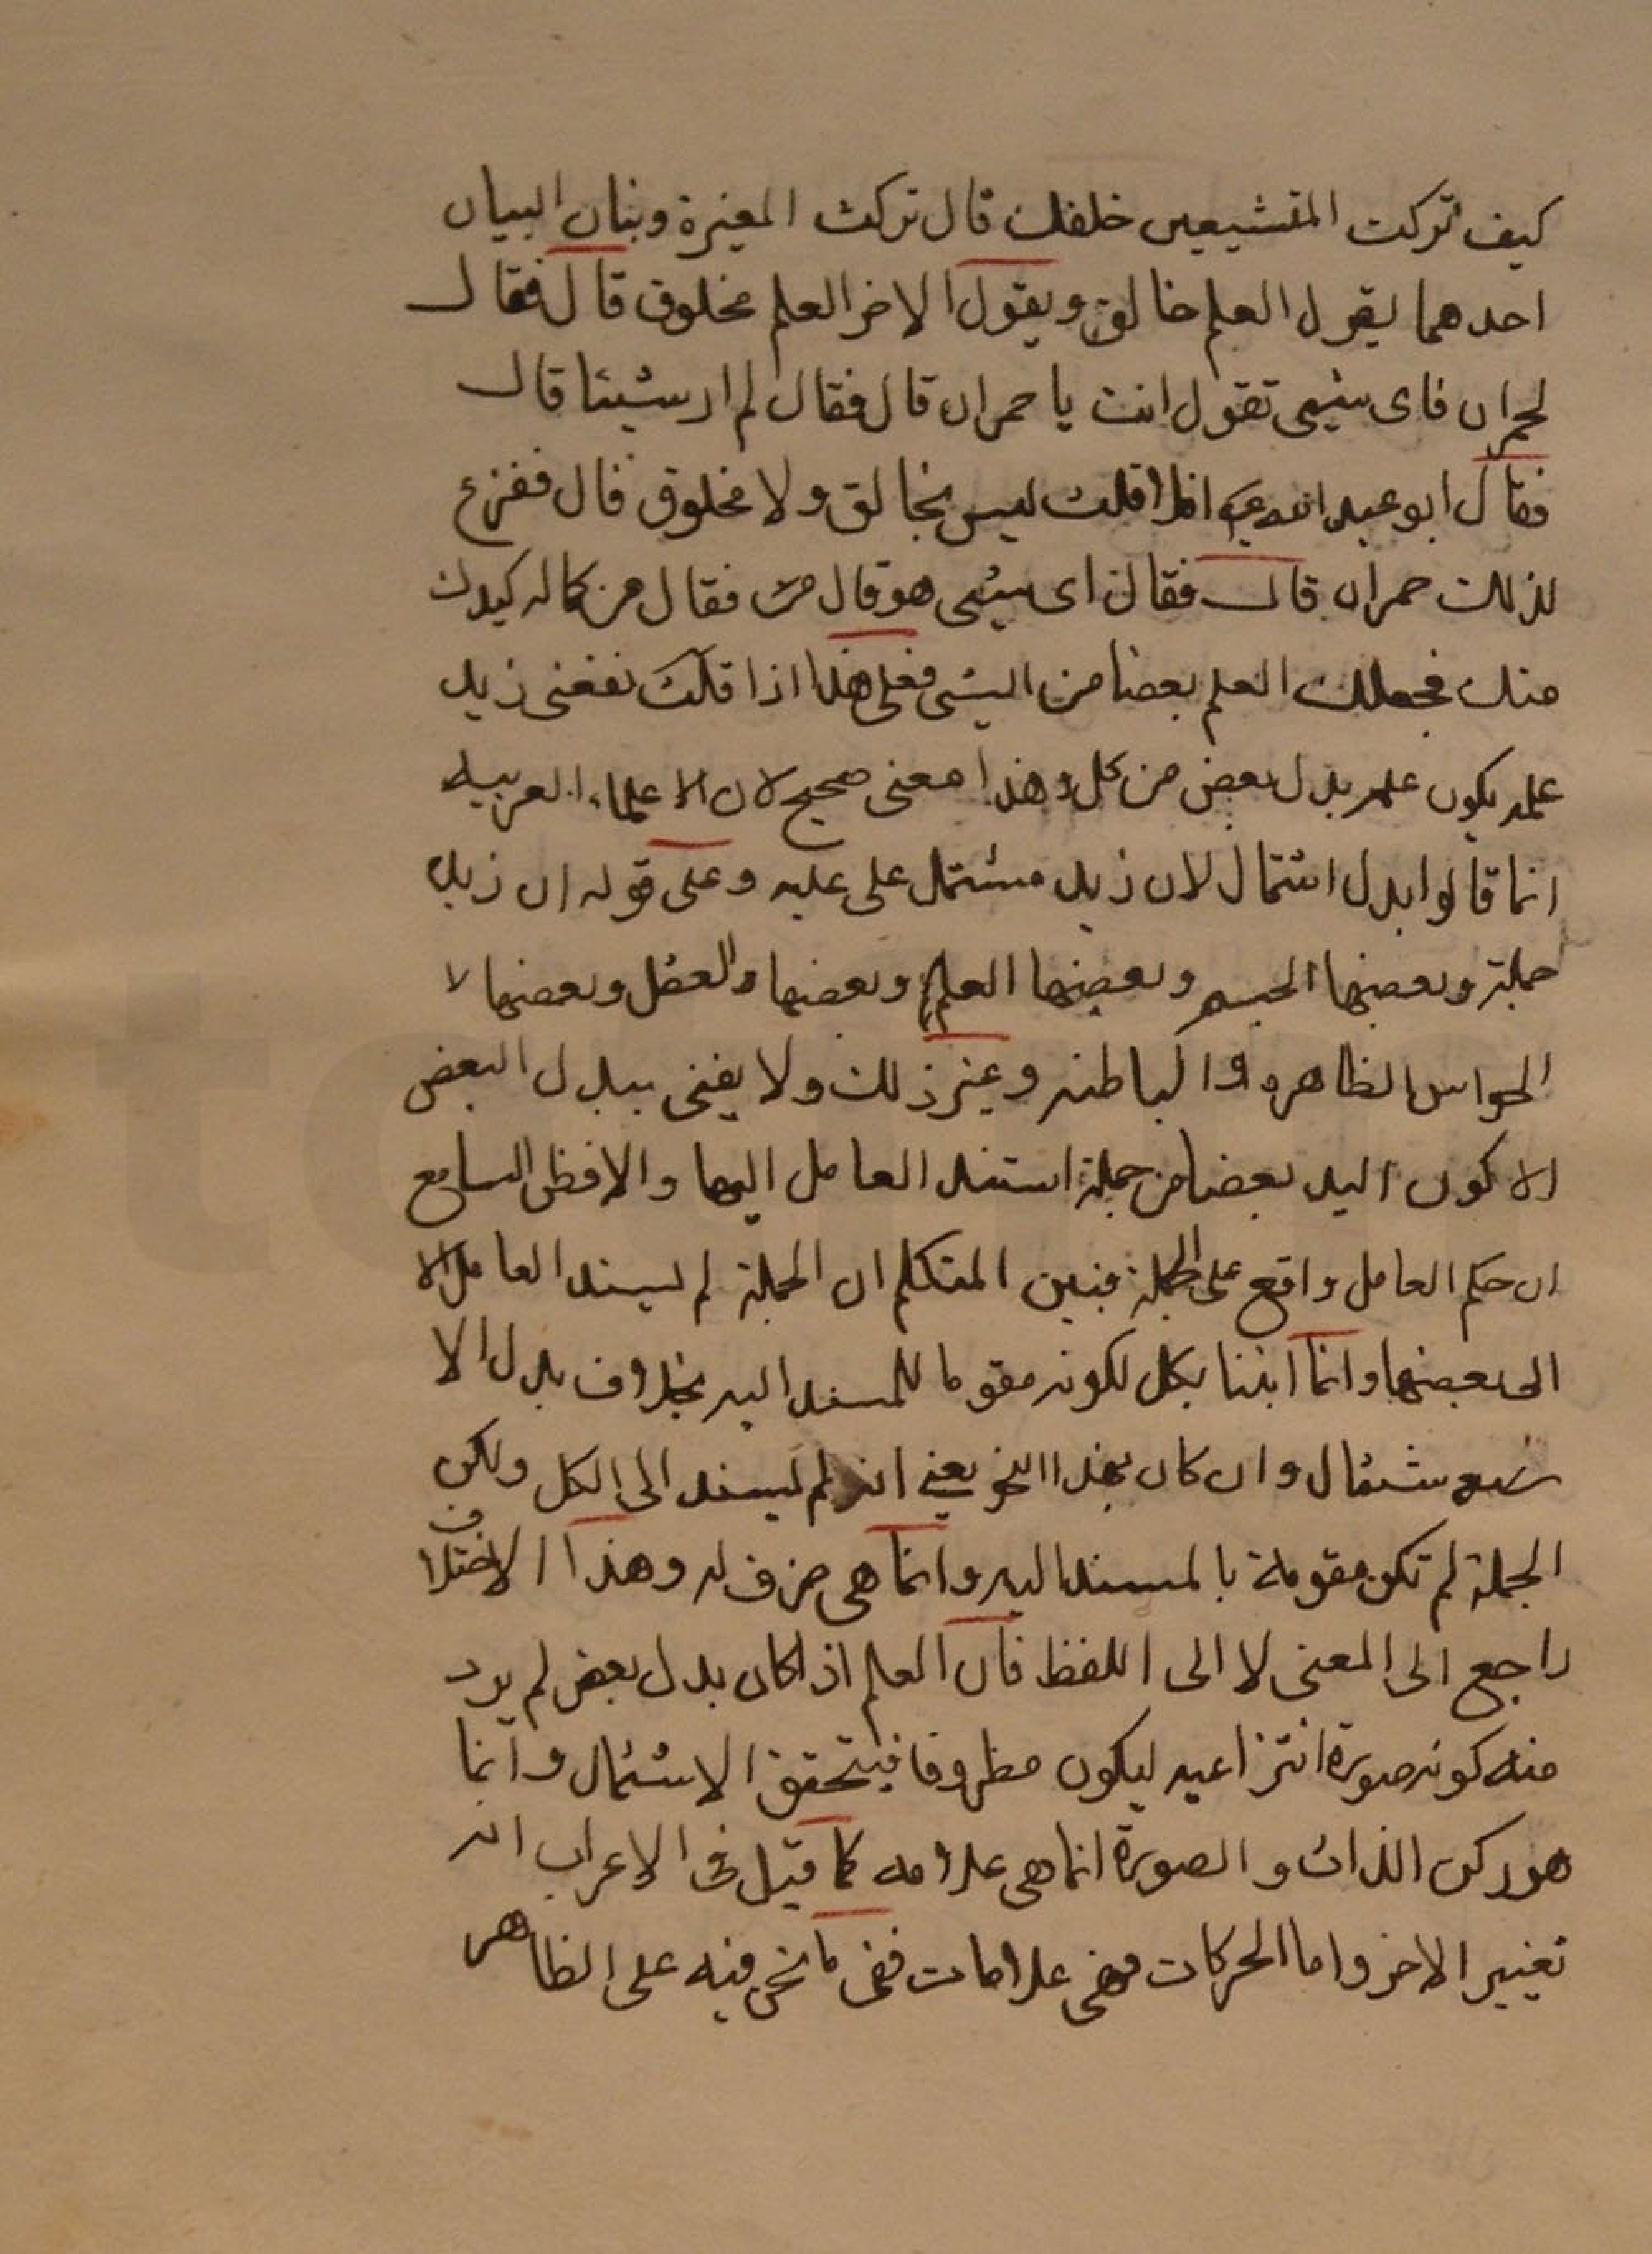 كيف تركت المتشيعين خلفك قال تركت المغيرة وبنان البيان
احدهما يقول العلم خالق ويقول الاخر العلم مخلوق قال فقال
لحمران فاى شيئ تقول انت يا حمران قال فقال لم ار شيئا قال
فقال ابو عبد الله افلا قلت ليس بخالق ولا مخلوق قال ففزع
لذلك حمران قال فقال اى شيئ هو قال فقال من كماله كيدك
منك فجعلك العلم بعضا من الشيئ فعلى هذا اذا قلت نفعنى زيد
علمه يكون علمه بدل بعض من كل وهذا معنى صحيح لان الا علماء العربيه
انما قالوا بدل اشتمال لان زيد مشتمل على عليه وعلى قوله ان زيد
جملة وبعضها الجسم وبعضها العلم وبعضها والعقل وبعضها لا
الحواس الظاهره والباطنه وغير ذلك ولا يعنى ببدل البعض
الا كون اليد بعضا من جملة استند العامل اليها والا فظن السامع
ان حكم العامل واقع على الجملة فبين المتكلم ان الجملة لم يسند العامل الا
الى بعضها وانما ابننا بكل لكونه مقوما للمسند اليه بخلاف بدل الا
شتمال وان كان بهذا النحو يعنى انه لم يسند الى الكل ولكن
الجملة لم تكن مقومة بالمسند اليه وانما هى ظرف له وهذا الاختلاف
راجع الى المعنى لا الى اللفظ فان العلم اذا كان بدل بعض لم يرد
منه كونه صورة انتزاعيه ليكون مظروفا فيتحقق الاشتمال وانما
هو ركن الذات والصورة انما هى علامه كما قيل فى الاعراب انه
تغيير الاخر واما الحركات فهى علامات ففى ما نحن فيه على الظاهر